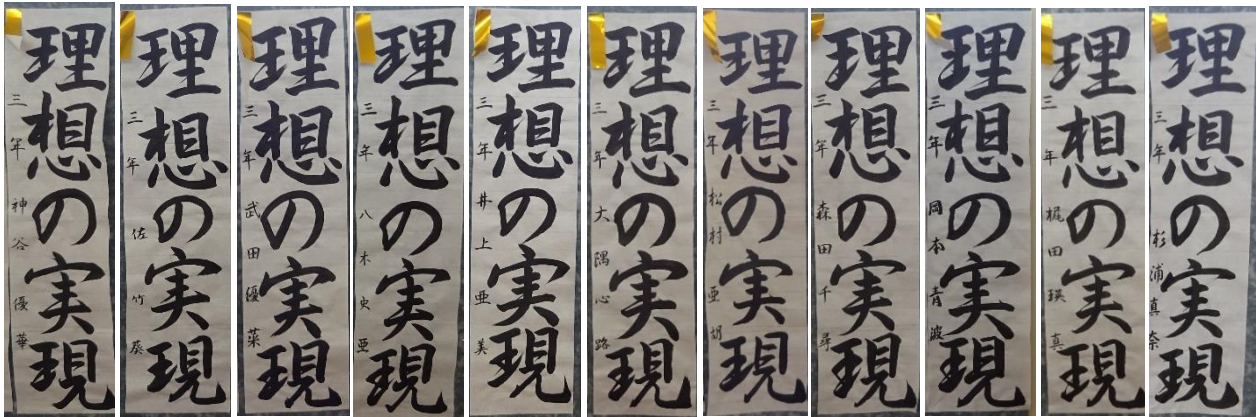 理想の実現
三年 神谷優華
理想の実現
三年 佐竹葵
理想の実現
三年 武田優菜
理想の実現
三年 八木史亜
理想の実現
三年 井上亜美
理想の実現
三年 大隅心路
理想の実現
三年 松村亜胡
理想の実現
三年 森田千尋
理想の実現
三年 岡本青波
理想の実現
三年 梶田瑛真
理想の実現
三年 杉浦真奈